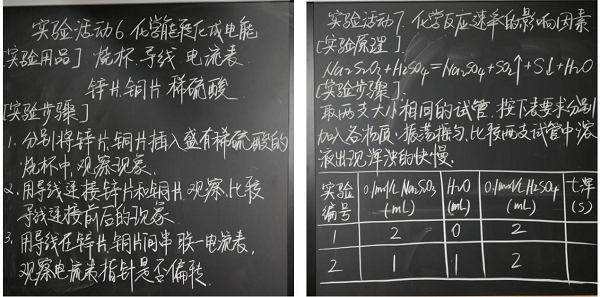 实验活动6.化学能转化成电能
[实验用品] 烧杯.导线 电流表
锌片.铜片 稀硫酸
[实验步骤]
1.分别将锌片.铜片插入盛有稀硫酸的
烧杯中,观察现象.
2.用导线连接锌片和铜片.观察.比较
导线连接前后的现象
3.用导线在锌片.铜片间串联一电流表,
观察电流表指针是否偏转.
实验活动7.化学反应速率的影响因素
[实验原理]
Na₂S₂O₃+H₂SO₄=Na₂SO₄+SO₂↑+S↓+H₂O
[实验步骤]
取两支大小相同的试管.按下表要求分别
加入各溶液.振荡摇匀.比较两支试管中溶
液出现浑浊的快慢.
实验编号 0.1mol/L Na₂S₂O₃ (mL) H₂O (mL) 0.1mol/L H₂SO₄ (mL) t浑 (s)
1 2 0 2
2 1 1 2